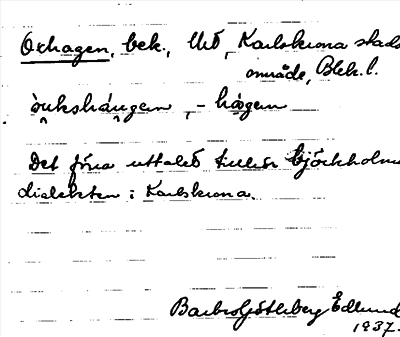 Oxhagen, bek., Urö, Karlskrona stads
område, Blek. l.
òukshá̭ugen, – hågen
Det förra uttalet tillhör Björkholms
dialekten i Karlskrona.
Barbro Götlberg Edlund
1937.